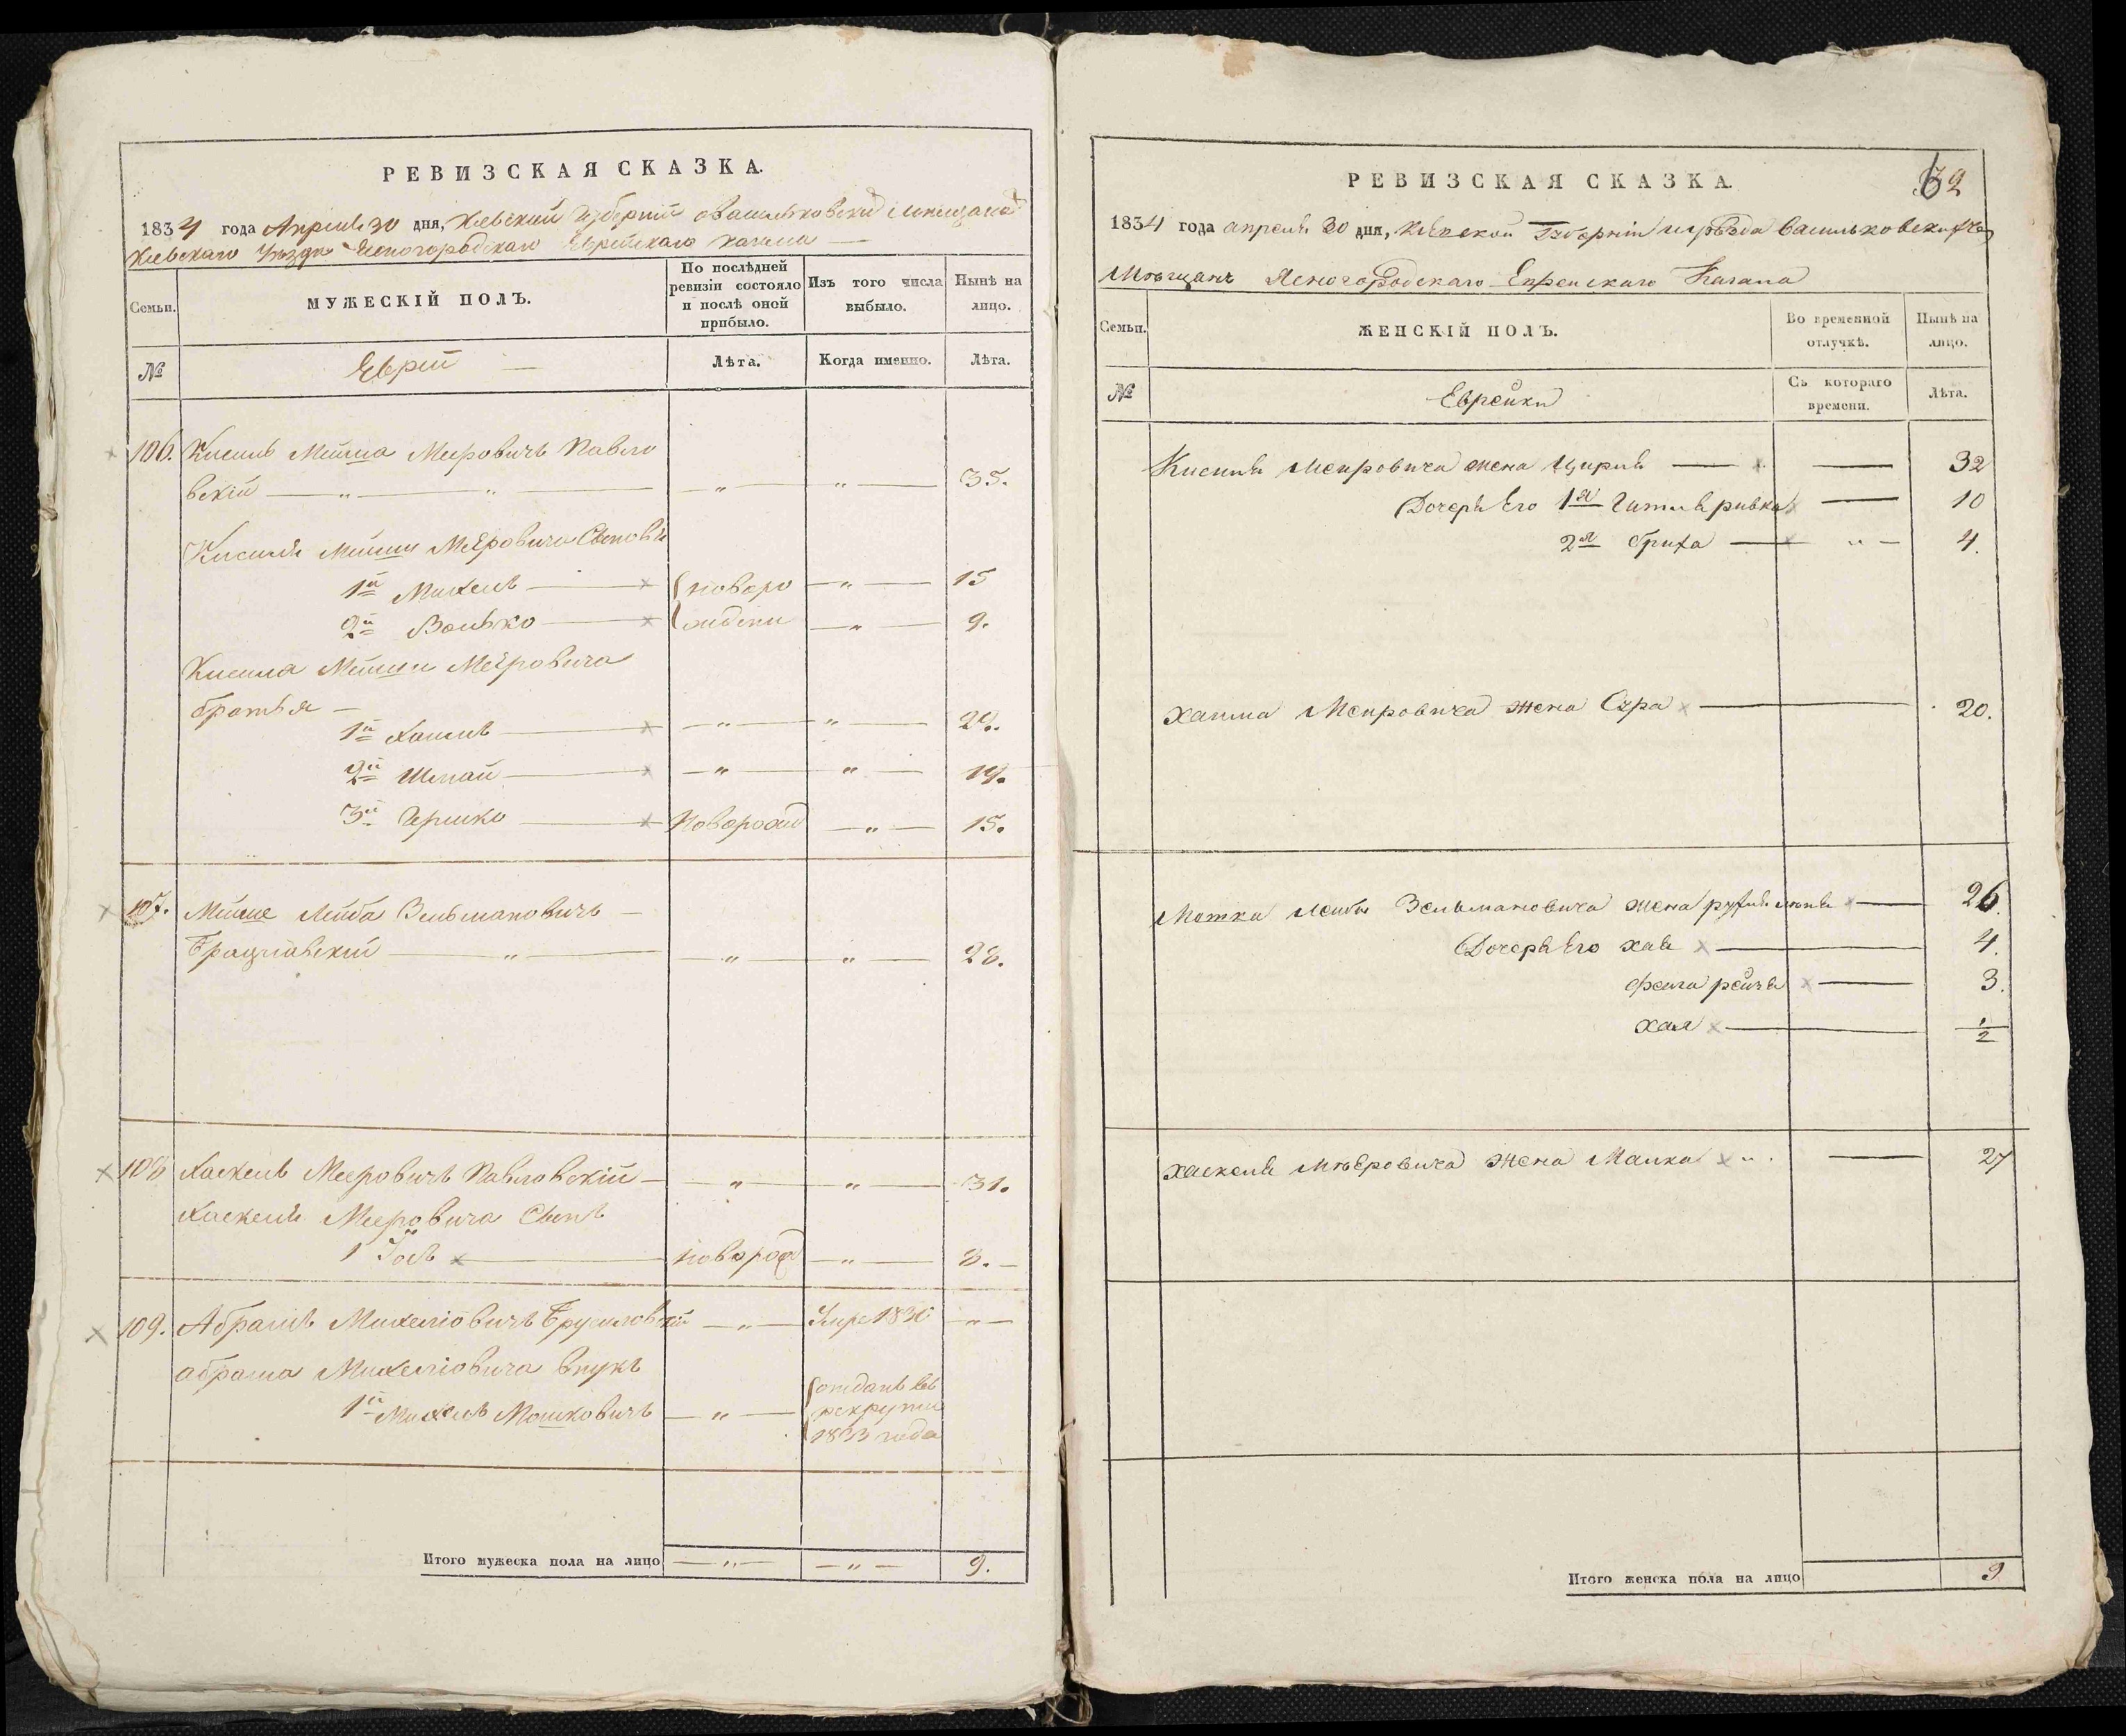 РЕВИЗСКАЯ СКАЗКА.
1834 года Апреля 30 дня, Кіевской Губерніи о Васильковскихъ Мещанахъ
Кіевскаго Уезда Ясногородскаго Еврейскаго кагала
Семьи.
МУЖЕСКІЙ ПОЛЪ.
По послѣдней ревизіи состояло и послѣ оной прибыло.
Изъ того числа выбыло.
Нынѣ на лицо.
№
Еврей
Лѣта.
Когда именно.
Лѣта.
106. Кисиль Мошка Меровичъ Павло
вскій — " — " — " — " — 35.
Кисиля Мошки Меeровича Сыновья
1й Михель — новоро — " — 15
2й Волько — жденн — " — 9.
Кисиля Мошки Меeровича
братья —
1й Хаимъ — " — " — 22.
2й Шмай — " — " — 19.
3й Гершко — Новорожд — " — 15.
107. Лейба Зельмановичъ —
Брацлавскій — " — " — " — 28.
108 Хаскель Мееровичъ Павловскій — " — " — 31.
Хаскеля Мееровича Сынъ
1 Іосъ — новорож — " — 8. —
109. Абрамъ Михеліовичъ Брусиловскій — " — Умре 1830 — " —
абрама Михеліовича внукъ
1й Михель Мошковичъ — " — отданъ въ
рекруты
1833 года
Итого мужеска пола на лицо — " — — " — 9.
РЕВИЗСКАЯ СКАЗКА.
62
1834 года апреля 30 дня, Кіевской Губерніи и уѣзда Васильковскихъ
Мѣщанъ Ясногородскаго Еврейскаго Кагала
Семьи.
ЖЕНСКІЙ ПОЛЪ.
Во временной отлучкѣ.
Нынѣ на лицо.
№
Еврейки
Съ котораго времени.
Лѣта.
Кисиля Меировича жена Цирля — — 32
Дочери Его 1я Гитля ривка — 10
2я Бруха — " — 4.
Хаима Меировича жена Сура — 20.
Мошка Лейбы Зельмановича жена рухля — 26.
Дочери Его хая — 4.
Фейга рейзя — 3.
хая — 1/2
хаскеля Меѣровича жена Малка " . — 27
Итого женска пола на лицо 9